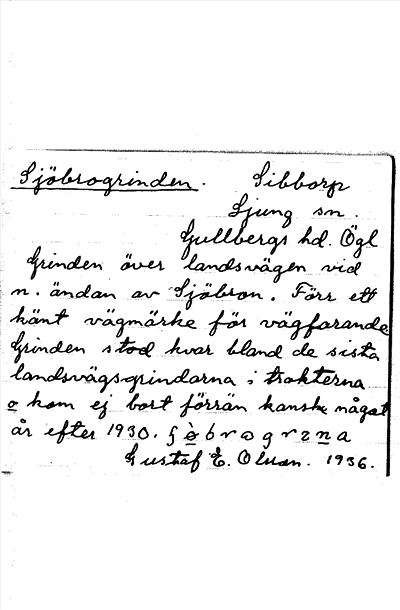 Sjöbrogrinden. Sibborp
Ljung sn.
Gullbergs hd. Ögl
Grinden över landsvägen vid
n. ändan av Sjöbron. Förr ett
känt vägmärke för vägfarande
Grinden stod kvar bland de sista
landsvägsgrindarna i trakterna
o kom ej bort förrän kanske något
år efter 1930.
Gustaf E. Olsson. 1936.